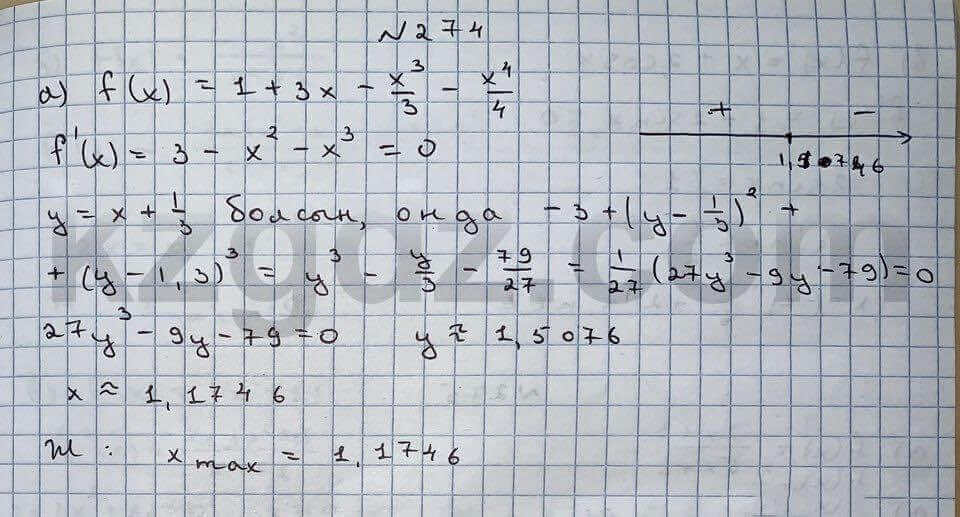 №274
а) f(x) = 1 + 3x - x³/3 - x⁴/4
+ -
f'(x) = 3 - x² - x³ = 0
y = x + 1/3 болсын, онда -3 + (y - 1/3)² +
+ (y - 1,3)³ = y³ - y/3 - 79/27 = 1/27 (27y³ - 9y - 79) = 0
27y³ - 9y - 79 = 0 y ≈ 1,5076
x ≈ 1,1746
Ж: x max = 1,1746
kzgdz.com